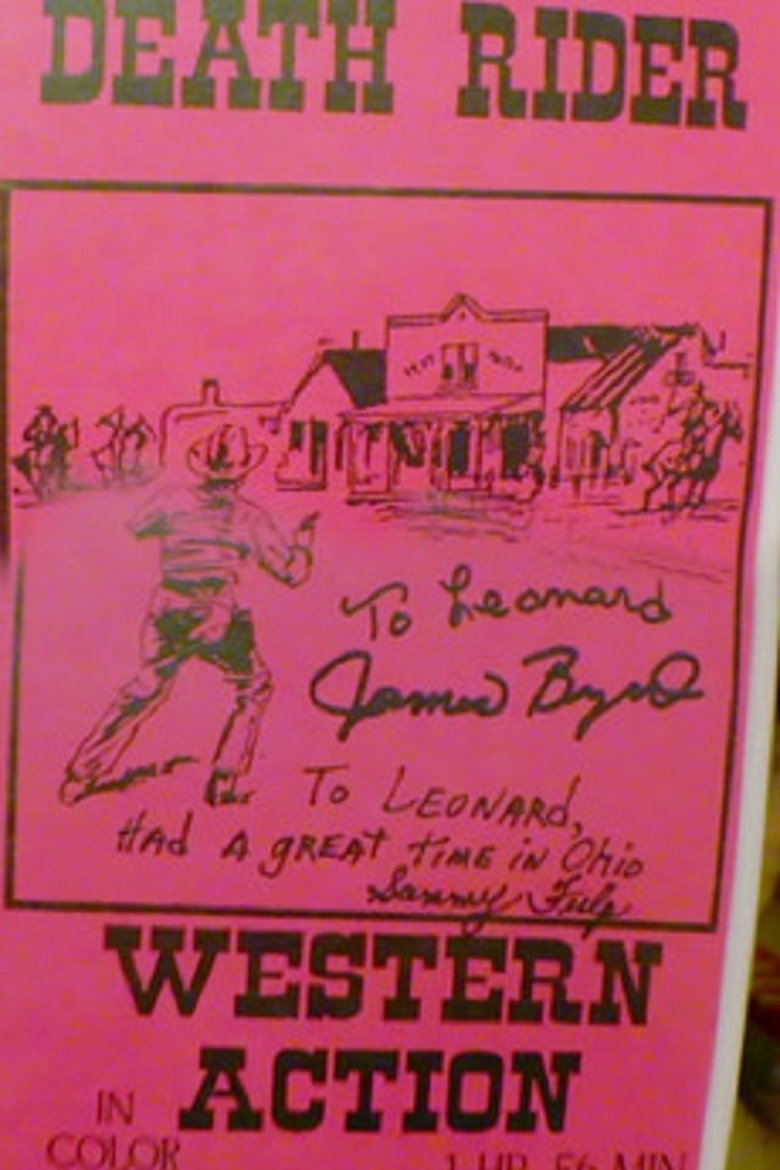 DEATH RIDER
To Leonard
James Byrd
To LEONARD,
HAd A gREAT TIME iN OHio
Sammy Fulp
WESTERN
ACTION
IN
COLOR
1 HR. 56 MIN